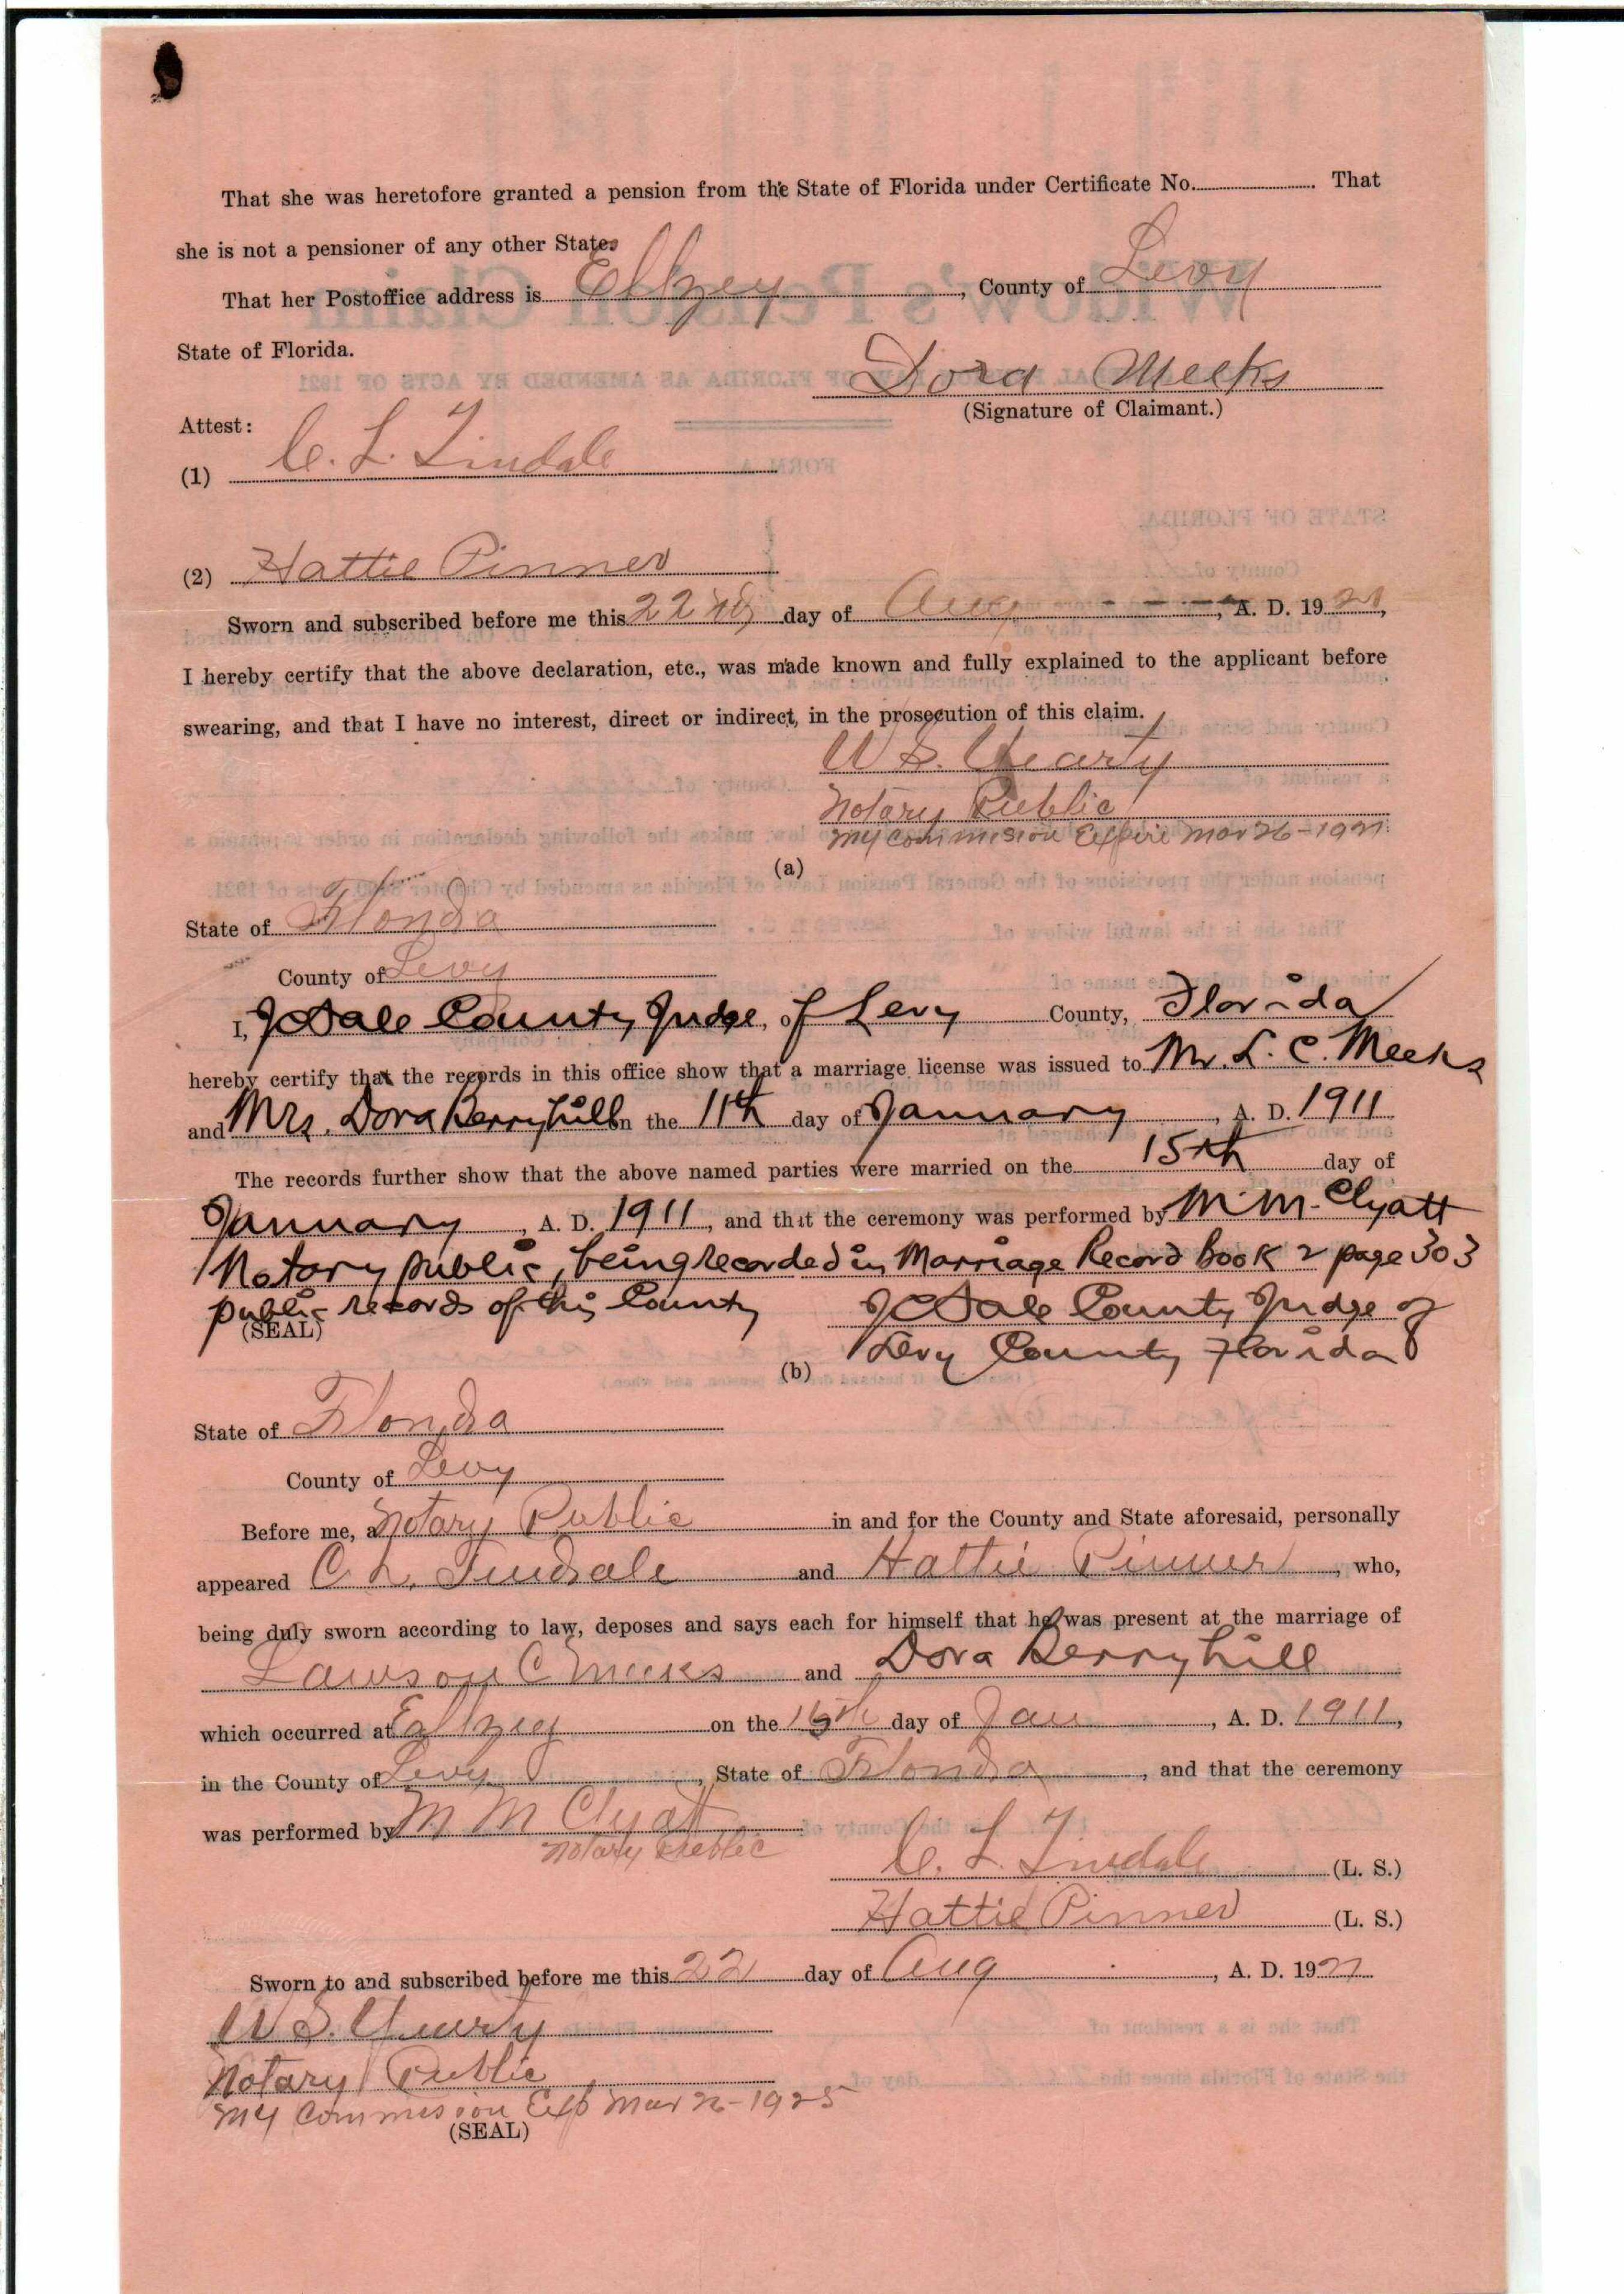 That she was heretofore granted a pension from the State of Florida under Certificate No. That
she is not a pensioner of any other State.
That her Postoffice address is Ellzey, County of Levy
State of Florida.
Dora Meeks
(Signature of Claimant.)
Attest:
(1) C. L. Tindale
(2) Hattie Pinner
Sworn and subscribed before me this 22 day of Aug, A. D. 1921,
I hereby certify that the above declaration, etc., was made known and fully explained to the applicant before
swearing, and that I have no interest, direct or indirect, in the prosecution of this claim.
W S. Yearty
Notary Public
My Commission Expire Mar 26-
(a)
State of Florida
County of Levy
I, County Judge, of Levy County, Florida
hereby certify that the records in this office show that a marriage license was issued to Mr. L. C. Meeks
and Mrs. Dora Berryhill on the 11th day of January, A. D. 1911
The records further show that the above named parties were married on the 15th day of
January, A. D. 1911, and that the ceremony was performed by M. M. Clyatt
Notary public, being recorded in Marriage Record Book 2 page 303
public records of this County
(SEAL)
County Judge of
Levy County Florida
(b)
State of Florida
County of Levy
Before me, a Notary Public in and for the County and State aforesaid, personally
appeared C. L. Tindale and Hattie Pinner, who,
being duly sworn according to law, deposes and says each for himself that he was present at the marriage of
Lawson C Meeks and Dora Berryhill
which occurred at Ellzey on the 15th day of Jan, A. D. 1911,
in the County of Levy, State of Florida, and that the ceremony
was performed by M M Clyatt
Notary Public
C. L. Tindale (L. S.)
Hattie Pinner (L. S.)
Sworn to and subscribed before me this 22 day of Aug, A. D. 1921
W S. Yearty
Notary Public
My Commission Exp Mar 26-1925
(SEAL)